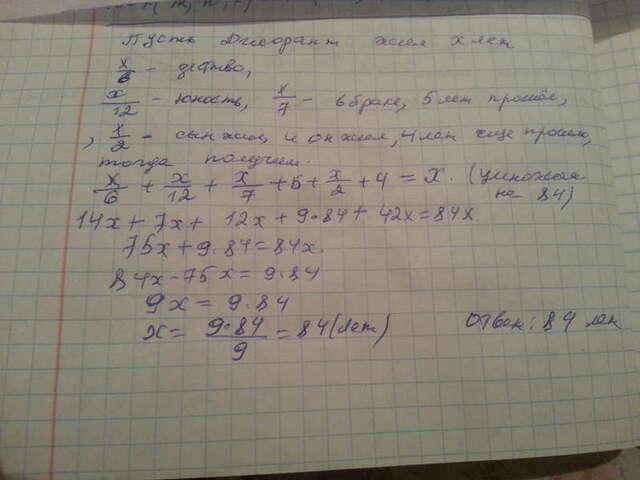 Пусть Диофант жил x лет
x/6 - детство,
x/12 - юность, x/7 - в браке, 5 лет прошло,
, x/2 - сын жил, и он жил, 4 лет еще прошло,
тогда получим.
x/6 + x/12 + x/7 + 5 + x/2 + 4 = x. (умножая на 84)
14x + 7x + 12x + 9·84 + 42x = 84x
75x + 9·84 = 84x.
84x - 75x = 9·84
9x = 9·84
x = 9·84/9 = 84 (лет) Ответ: 84 лет